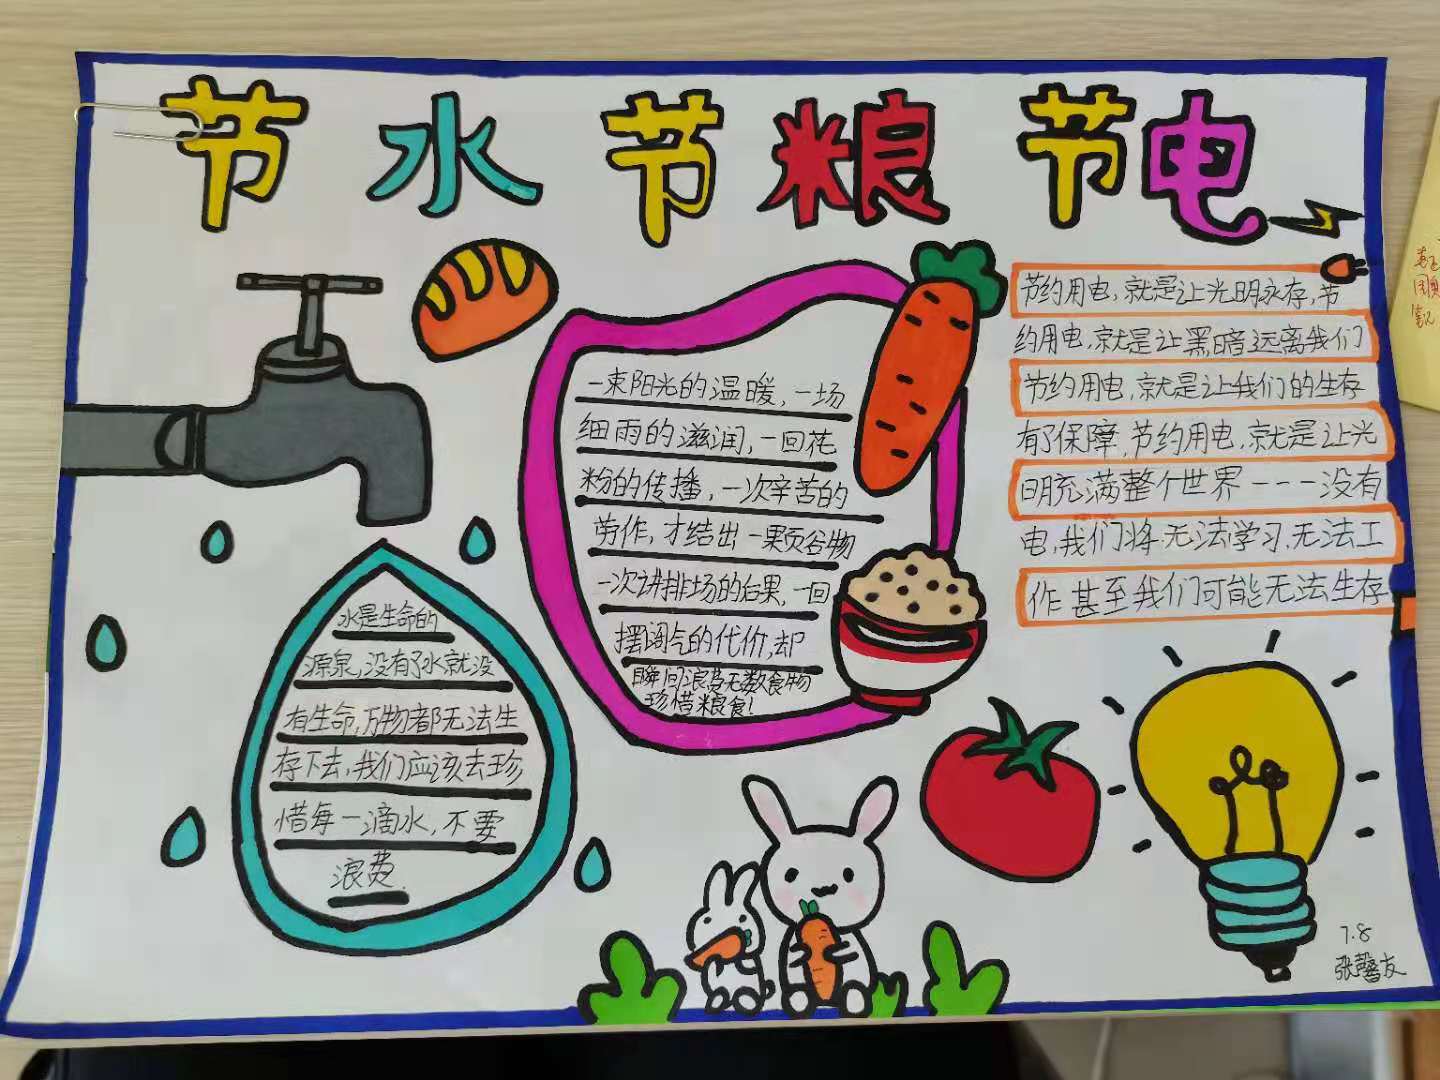 节水节粮节电
水是生命的
源泉,没有了水就没
有生命,万物都无法生
存下去,我们应该去珍
惜每一滴水,不要
浪费.
一束阳光的温暖,一场
细雨的滋润,一回花
粉的传播,一次辛苦的
劳作,才结出一颗谷物
一次讲排场的后果,一回
摆阔气的代价,却
瞬间浪费无数食物
珍惜粮食!
节约用电,就是让光明永存,节
约用电,就是让黑暗远离我们
节约用电,就是让我们的生存
有了保障,节约用电,就是让光
明充满整个世界----没有
电,我们将无法学习,无法工
作甚至我们可能无法生存
7.8
张馨友